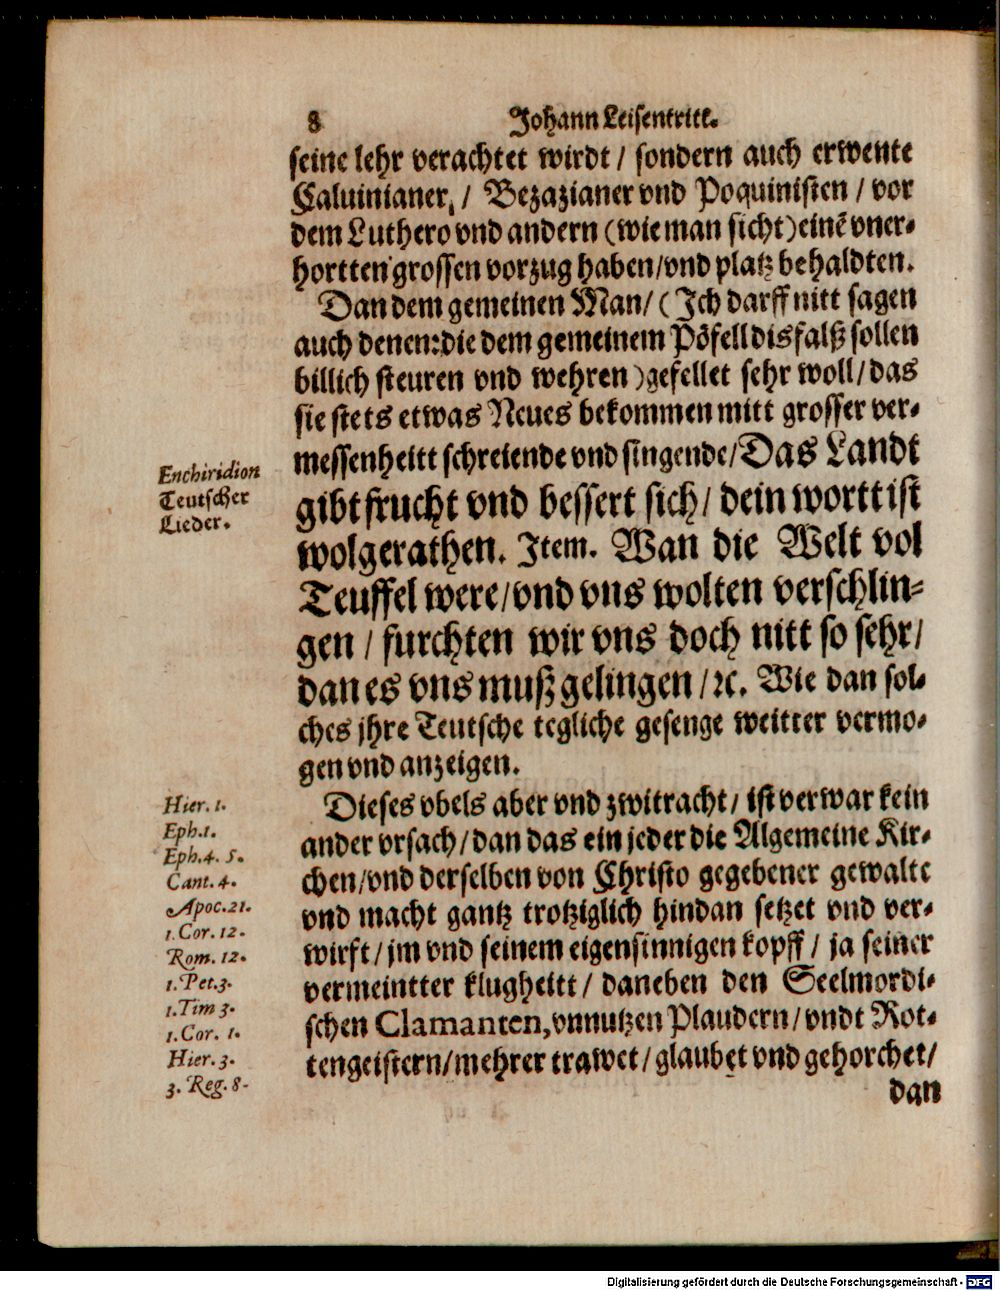 8 Johann Leisentritt.
seine lehr verachtet wirdt / sondern auch erwente
Caluinianer, / Bezazianer vnd Poquinisten / vor
dem Luthero vnd andern (wie man sicht) einē vner-
hortten grossen vorzug haben/vnd platz behaldten.
Dan dem gemeinen Man/ (Ich darff nitt sagen
auch denen:die dem gemeinem Pöfell disfalß sollen
billich steuren vnd wehren )gefellet sehr woll/das
sie stets etwas Neues bekommen mitt grosser ver-
messenheitt schreiende vnd singende/Das Landt
gibt frucht vnd bessert sich/ dein wortt ist
wolgerathen. Item. Wan die Welt vol
Teuffel were/vnd vns wolten verschlin-
gen / furchten wir vns doch nitt so sehr/
dan es vns muß gelingen /ꝛc. Wie dan sol-
ches jhre Teutsche tegliche gesenge weitter vermo-
gen vnd anzeigen.
Enchiridion
Teutscher
Lieder.
Dieses vbels aber vnd zwitracht/ ist verwar kein
ander vrsach/dan das ein jeder die Algemeine Kir-
chen/vnd derselben von Christo gegebener gewalt
vnd macht gantz trotziglich hindan setzet vnd ver-
wirft/ jm vnd seinem eigensinnigen kopff/ ja seiner
vermeintter klugheitt/ daneben den Seelmordi-
schen Clamanten,vnnutzen Plaudern/vndt Rot-
tengeistern/mehrer trawet/glaubet vnd gehorchet/
dan
Hier. 1.
Eph.1.
Eph.4. 5.
Cant. 4.
Apoc.21.
1.Cor. 12.
Rom. 12.
1.Pet.3.
1.Tim 3.
1.Cor. 1.
Hier. 3.
3. Reg. 8-
Digitalisierung gefördert durch die Deutsche Forschungsgemeinschaft - DFG